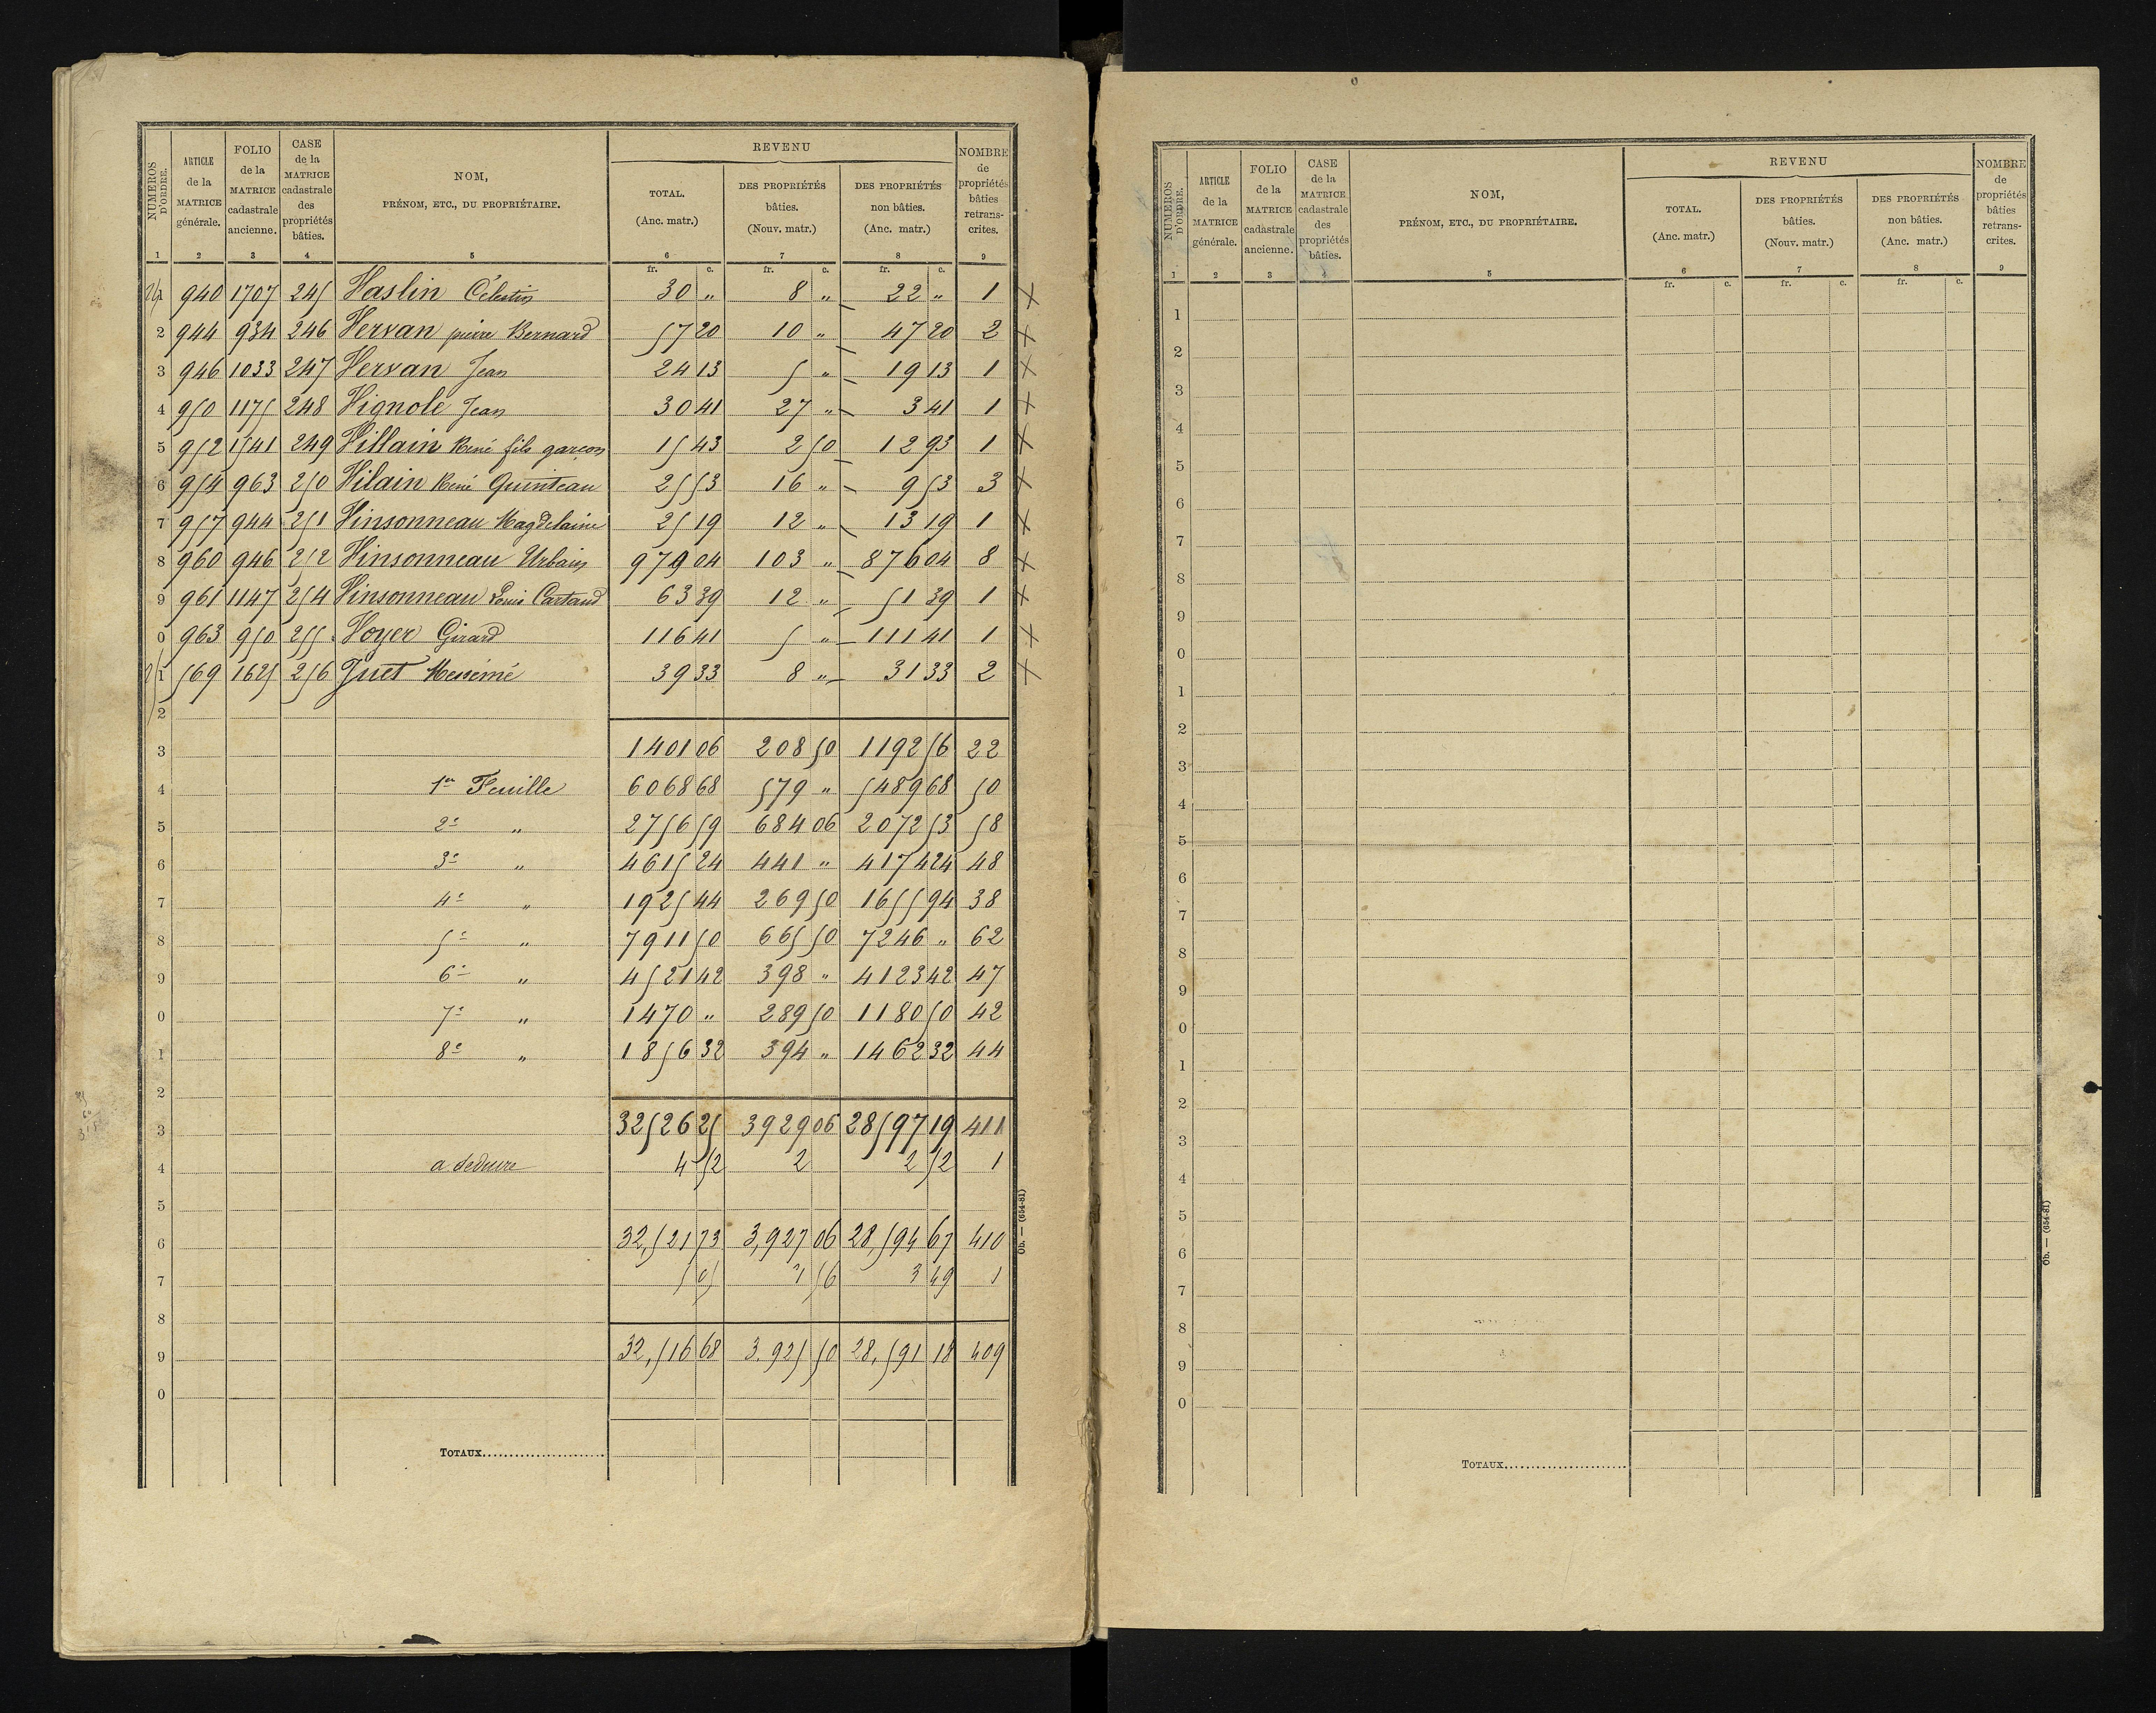 NUMÉROS D'ORDRE. | ARTICLE de la MATRICE générale. | FOLIO de la MATRICE cadastrale ancienne. | CASE de la MATRICE cadastrale des propriétés bâties. | NOM, PRÉNOM, ETC., DU PROPRIÉTAIRE. | REVENU TOTAL. (Anc. matr.) | REVENU DES PROPRIÉTÉS bâties. (Nouv. matr.) | REVENU DES PROPRIÉTÉS non bâties. (Anc. matr.) | NOMBRE de propriétés bâties retranscrites.
1 | 2 | 3 | 4 | 5 | 6 | 7 | 8 | 9
fr. c. | fr. c. | fr. c.
1 | 940 | 1707 | 245 | Vaslin Célestin | 30 " | 8 " | 22 " | 1 ×
2 | 944 | 934 | 246 | Vervan pierre Bernard | 57 20 | 10 " | 47 20 | 2 ×
3 | 946 | 1033 | 247 | Vervan Jean | 24 13 | 5 " | 19 13 | 1 ×
4 | 950 | 1175 | 248 | Vignole Jean | 30 41 | 27 " | 3 41 | 1 ×
5 | 952 | 1541 | 249 | Villain René fils garçon | 15 43 | 2 50 | 12 93 | 1 ×
6 | 954 | 963 | 250 | Vilain René Quinteau | 25 53 | 16 " | 9 53 | 3 ×
7 | 957 | 944 | 251 | Vinsonneau Magdelaine | 25 19 | 12 " | 13 19 | 1 ×
8 | 960 | 946 | 252 | Vinsonneau Urbain | 979 04 | 103 " | 876 04 | 8 ×
9 | 961 | 1147 | 254 | Vinsonneau Louis Cartaud | 63 39 | 12 " | 51 39 | 1 ×
0 | 963 | 950 | 255 | Voyer Girard | 116 41 | 5 " | 111 41 | 1 ×
1 | 569 | 1625 | 256 | Juet Messémé | 39 33 | 8 " | 31 33 | 2 ×
2
3 | 1401 06 | 208 50 | 1192 56 | 22
4 | 1re Feuille | 6068 68 | 579 " | 5489 68 | 50
5 | 2e " | 2756 59 | 684 06 | 2072 53 | 58
6 | 3e " | 4615 24 | 441 " | 4174 24 | 48
7 | 4e " | 1925 44 | 269 50 | 1655 94 | 38
8 | 5e " | 7911 50 | 665 50 | 7246 " | 62
9 | 6e " | 4521 42 | 398 " | 4123 42 | 47
0 | 7e " | 1470 " | 289 50 | 1180 50 | 42
1 | 8e " | 1856 32 | 394 " | 1462 32 | 44
2
3 | 32526 25 | 3929 06 | 28597 19 | 411
4 | a deduire | 4 52 | 2 | 2 52 | 1
5
6 | 32,521 73 | 3,927 06 | 28,594 67 | 410
7 | 5 05 | 1 56 | 3 49 | 1
8
9 | 32,516 68 | 3.925 50 | 28,591 18 | 409
0
TOTAUX
Ob. — (654-81)
NUMÉROS D'ORDRE. | ARTICLE de la MATRICE générale. | FOLIO de la MATRICE cadastrale ancienne. | CASE de la MATRICE cadastrale des propriétés bâties. | NOM, PRÉNOM, ETC., DU PROPRIÉTAIRE. | REVENU TOTAL. (Anc. matr.) | REVENU DES PROPRIÉTÉS bâties. (Nouv. matr.) | REVENU DES PROPRIÉTÉS non bâties. (Anc. matr.) | NOMBRE de propriétés bâties retranscrites.
1 | 2 | 3 | 4 | 5 | 6 | 7 | 8 | 9
fr. c. | fr. c. | fr. c.
1
2
3
4
5
6
7
8
9
0
1
2
3
4
5
6
7
8
9
0
1
2
3
4
5
6
7
8
9
0
TOTAUX
Ob. — (654-81)